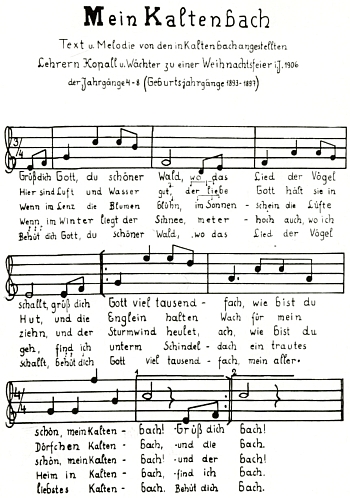 Mein Kaltenbach
Text u. Melodie von den in Kaltenbach angestellten
Lehrern Kopall u. Wächter zu einer Weihnachtsfeier i.J. 1906
der Jahrgänge 4-8 (Geburtsjahrgänge 1893-1897)
3/4
Grüß dich Gott, du schöner Wald, wo das Lied der Vögel
Hier sind Luft und Wasser gut, der liebe Gott hält sie in
Wenn im Lenz die Blumen blühn, im Sonnen-schein die Lüfte
Wenn im Winter liegt der Schnee, meter-hoch auch, wo ich
Behüt dich Gott, du schöner Wald, wo das Lied der Vögel
schallt, grüß dich Gott viel tausend-fach, wie bist du
Hut, und die Englein halten Wach für mein
ziehn, und der Sturmwind heulet, ach, wie bist du
geh, find ich unterm Schindel-dach ein trautes
schallt, behüt dich Gott viel tausend-fach, mein aller-
4/4
1
2
schön, mein Kalten-bach! Grüß dich bach!
Dörfchen Kalten-bach, und die bach.
schön, mein Kalten-bach! und der bach!
Heim in Kalten-bach, find ich bach.
liebstes Kalten-bach. Behüt dich bach.